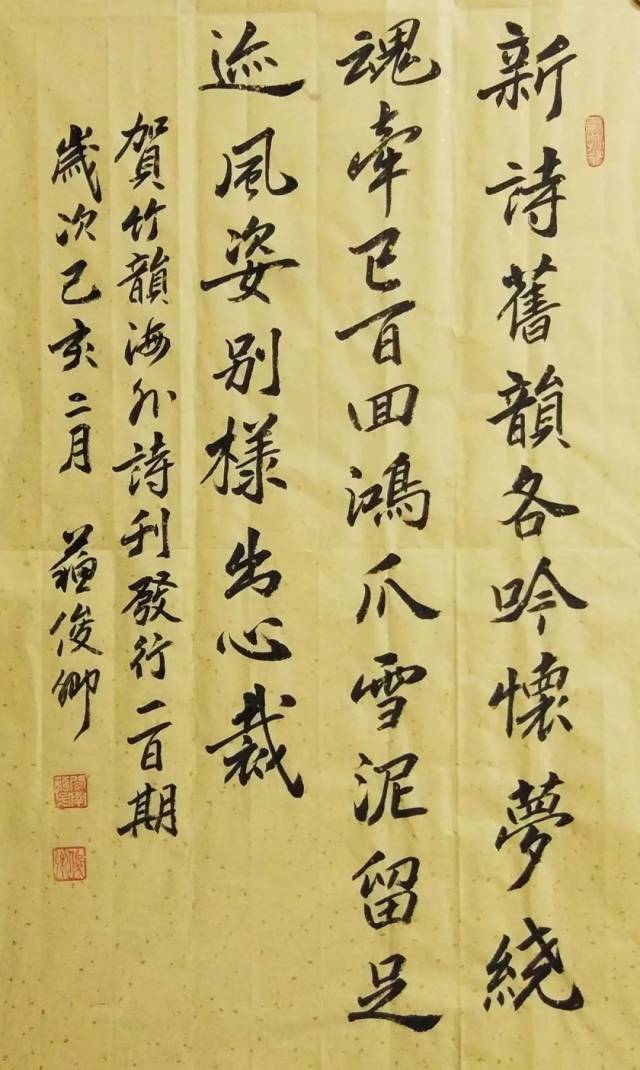 新詩舊韻各吟懷夢繞
魂牽已百回鴻爪雪泥留足
迹風姿別樣出心裁
賀竹韻海外詩刊發行一百期
歲次己亥二月 蘇俊卿